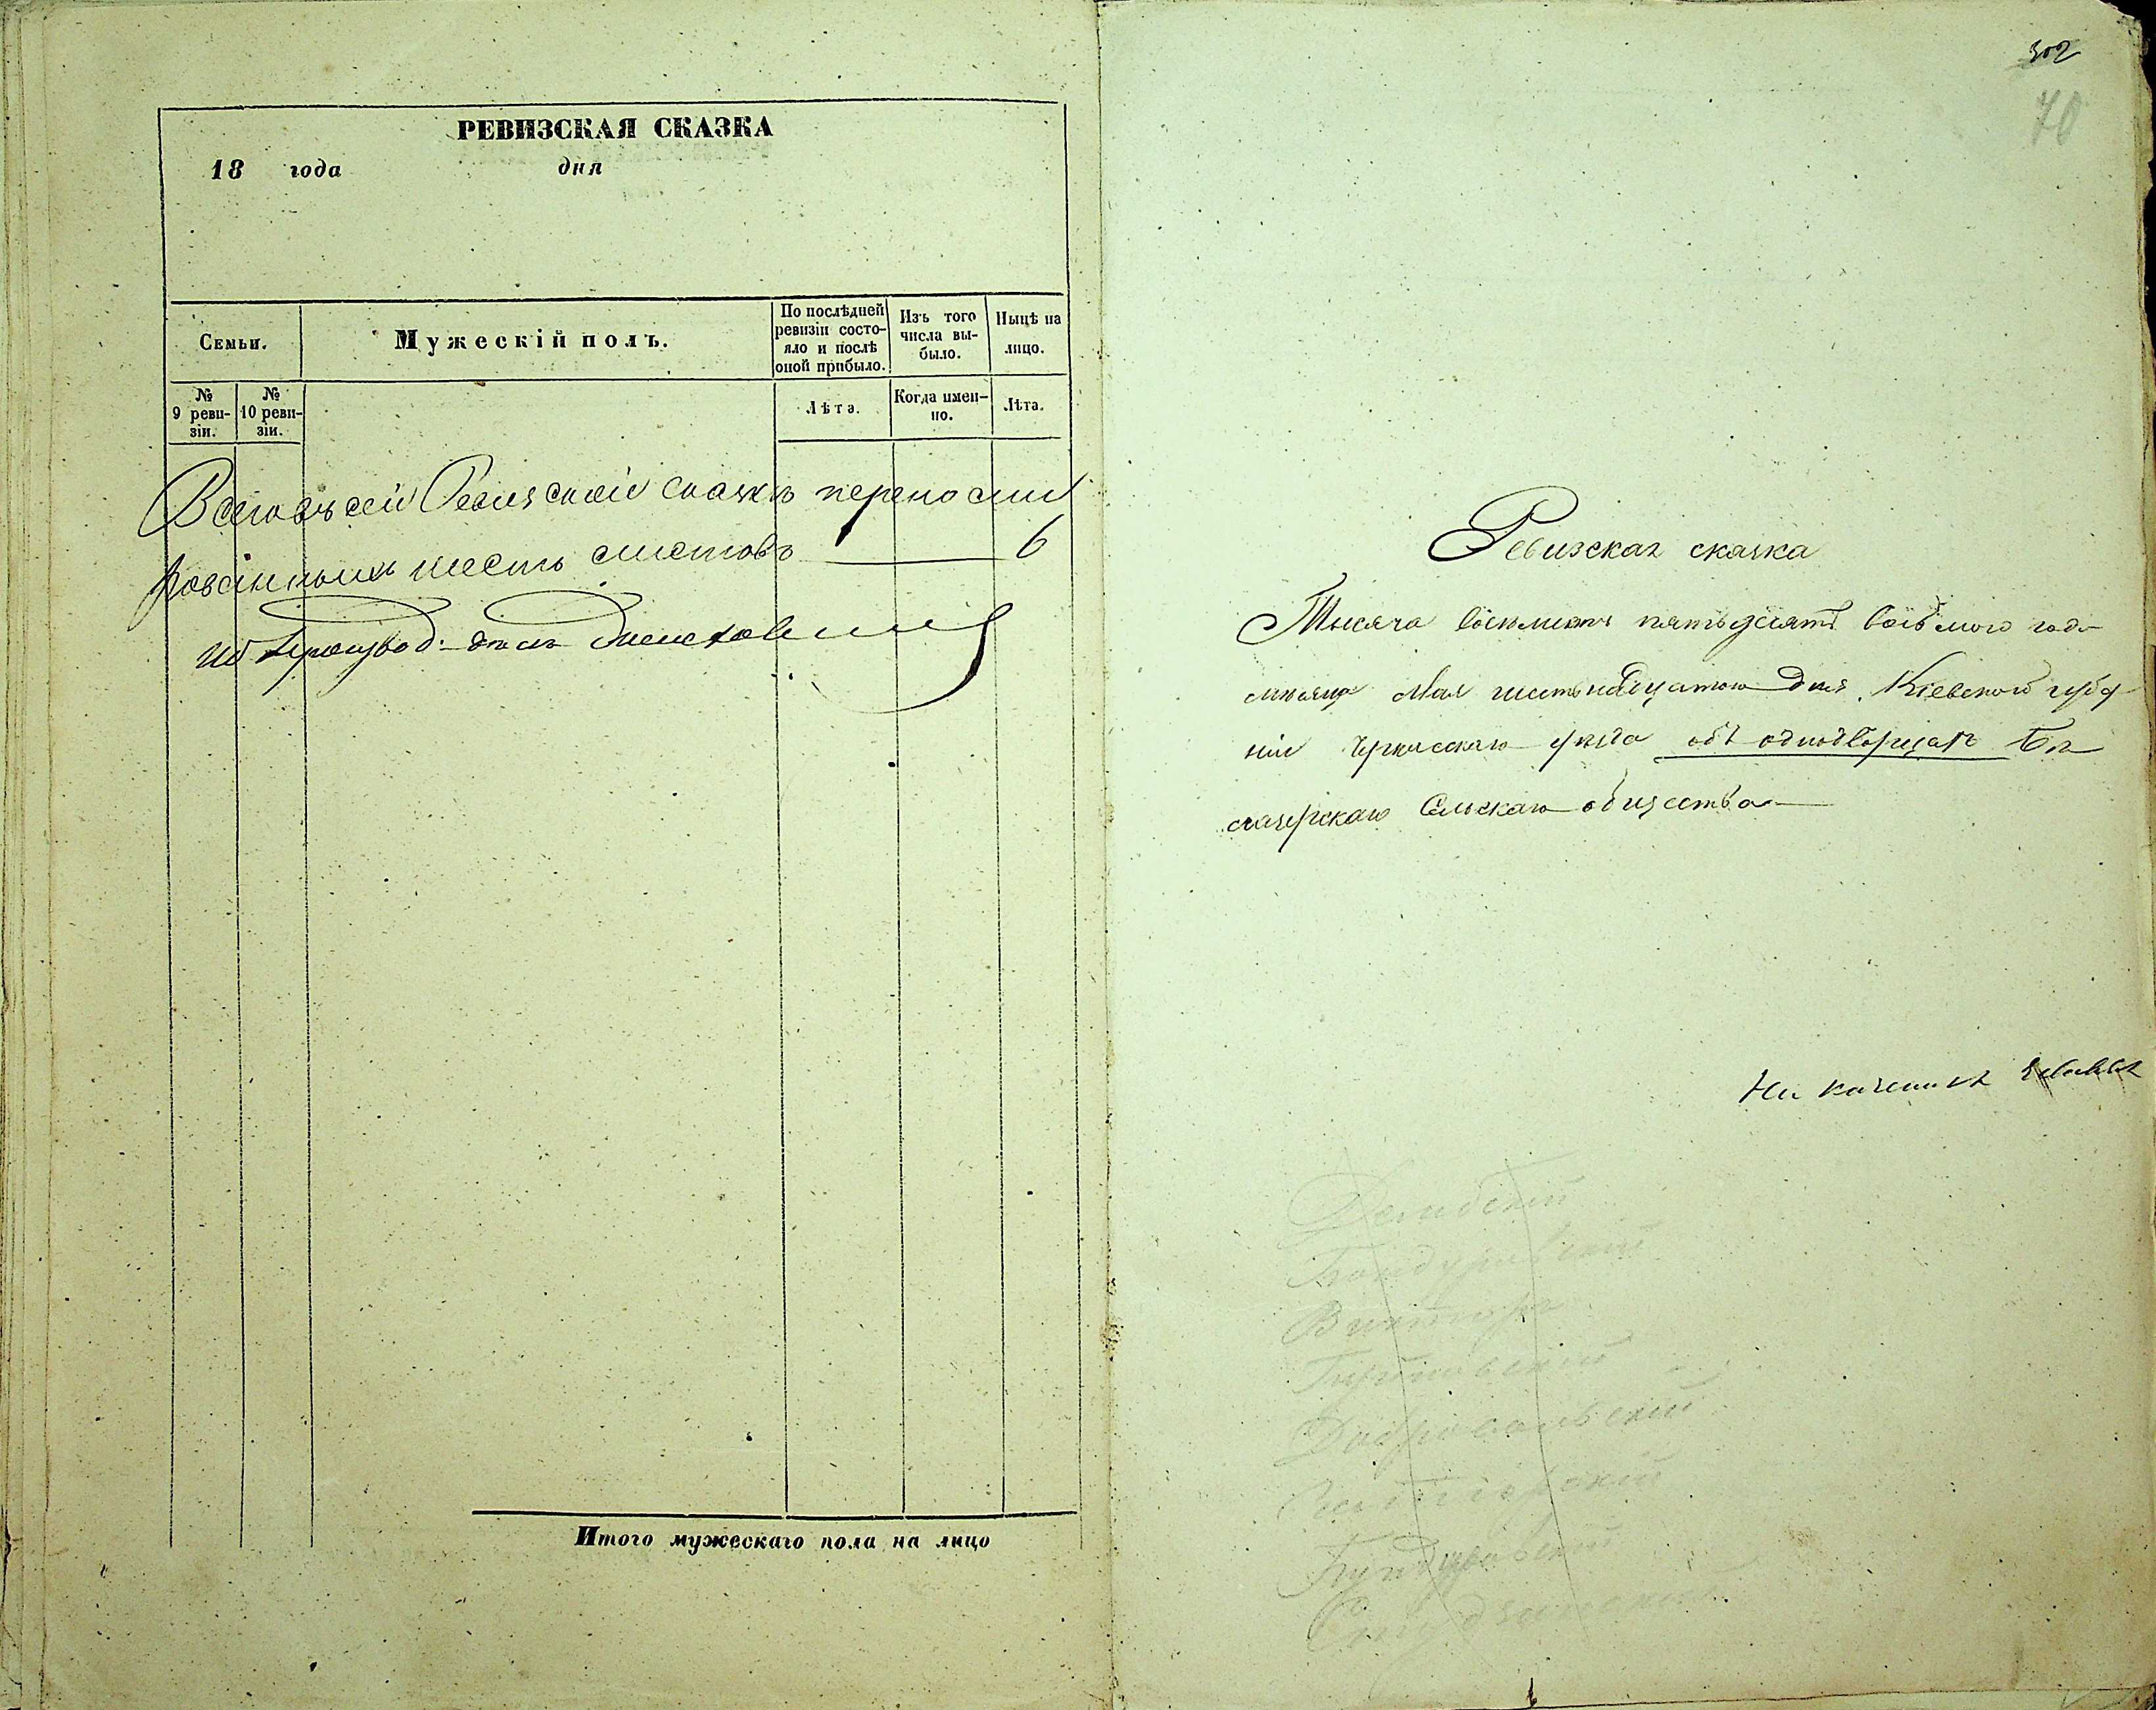 РЕВИЗСКАЯ СКАЗКА
18 года дня
Семьи.
Мужескій полъ.
По послѣдней ревизіи состо-
яло и послѣ оной прибыло.
Изъ того числа вы-
было.
Ныцѣ на лицо.
№ 9 реви-
зіи.
№ 10 реви-
зіи.
Лѣта.
Когда имен-
но.
Лѣта.
Всего въ сей Ревизской сказкѣ перенуме
рованныхъ шесть листовъ 6
Итого мужескаго пола на лицо
302
70
Ревизская сказка
Тысяча восемьсотъ пятьдесятъ восьмого года
мѣсяца Мая шестьнадцатого дня. Кіевской губер
ніи Черкасскаго уѣзда объ однодворцахъ Бѣ
лозерскаго Сельскаго общества
Дембскій
Викторъ
Добровольскій